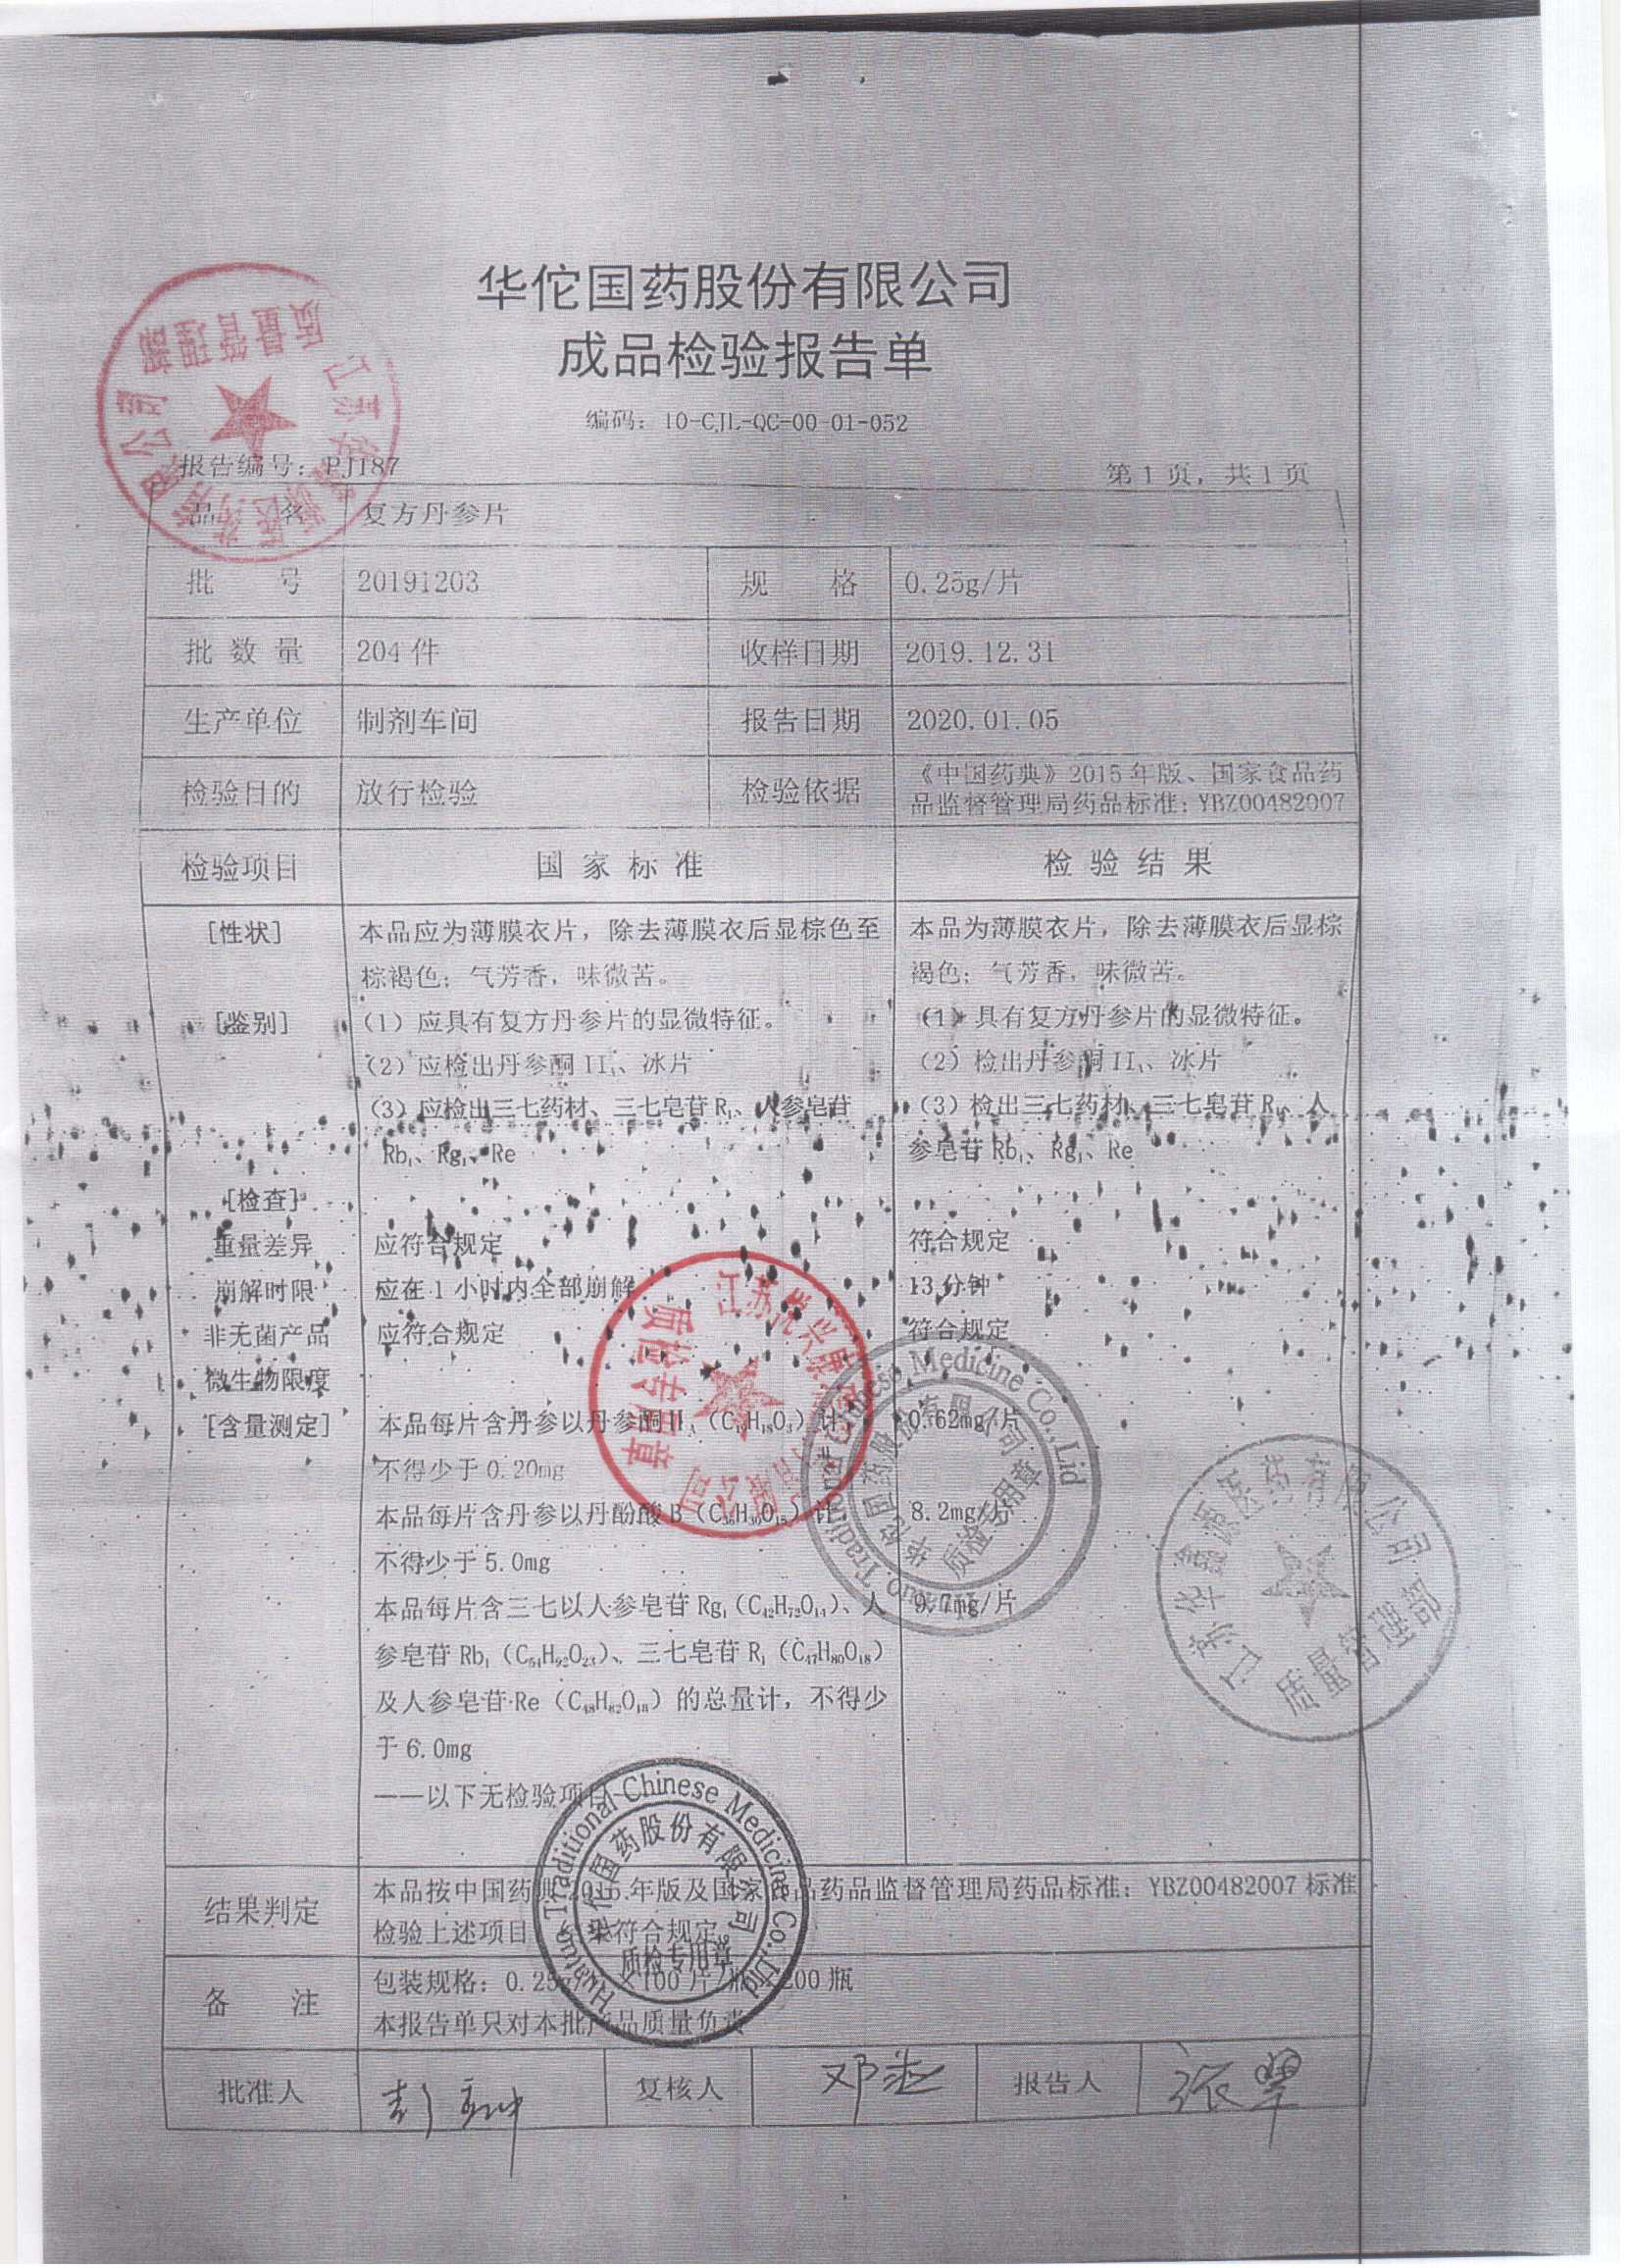 华佗国药股份有限公司
成品检验报告单
编码：10-CJL-QC-00-01-052
报告编号：PJ187
第1页，共1页
品 名 复方丹参片
批 号 20191203 规 格 0.25g/片
批 数 量 204件 收样日期 2019.12.31
生产单位 制剂车间 报告日期 2020.01.05
检验目的 放行检验 检验依据 《中国药典》2015年版、国家食品药
品监督管理局药品标准：YBZ00482007
检验项目 国 家 标 准 检 验 结 果
[性状] 本品应为薄膜衣片，除去薄膜衣后显棕色至 本品为薄膜衣片，除去薄膜衣后显棕
棕褐色；气芳香，味微苦。 褐色；气芳香，味微苦。
[鉴别] （1）应具有复方丹参片的显微特征。 （1）具有复方丹参片的显微特征。
（2）应检出丹参酮II、冰片 （2）检出丹参酮II、冰片
（3）应检出三七药材、三七皂苷R₁、人参皂苷 （3）检出三七药材、三七皂苷R₁、人
Rb₁、Rg₁、Re 参皂苷Rb₁、Rg₁、Re
[检查]
重量差异 应符合规定 符合规定
崩解时限 应在1小时内全部崩解 13分钟
非无菌产品 应符合规定 符合规定
微生物限度
[含量测定] 本品每片含丹参以丹参酮II（C₁₉H₁₈O₃）计 0.62mg/片
不得少于0.20mg
本品每片含丹参以丹酚酸B（C₃₆H₃₀O₁₆）计， 8.2mg/片
不得少于5.0mg
本品每片含三七以人参皂苷Rg₁（C₄₂H₇₂O₁₄）、人 9.7mg/片
参皂苷Rb₁（C₅₄H₉₂O₂₃）、三七皂苷R₁（C₄₇H₈₀O₁₈）
及人参皂苷Re（C₄₈H₈₂O₁₈）的总量计，不得少
于6.0mg
——以下无检验项目
结果判定 本品按中国药典2015年版及国家食品药品监督管理局药品标准：YBZ00482007标准
检验上述项目，结果符合规定。
备 注 包装规格：0.25g/片×100片/瓶×200瓶
本报告单只对本批产品质量负责
批准人 复核人 报告人 张翠
江苏华鑫源医药有限公司
质量管理部
质检专用章
Huatuo Traditional Chinese Medicine Co., Ltd
华佗国药股份有限公司
质检专用章
江苏华鑫源医药有限公司
质量管理部
Huatuo Traditional Chinese Medicine Co., Ltd
华佗国药股份有限公司
质检专用章